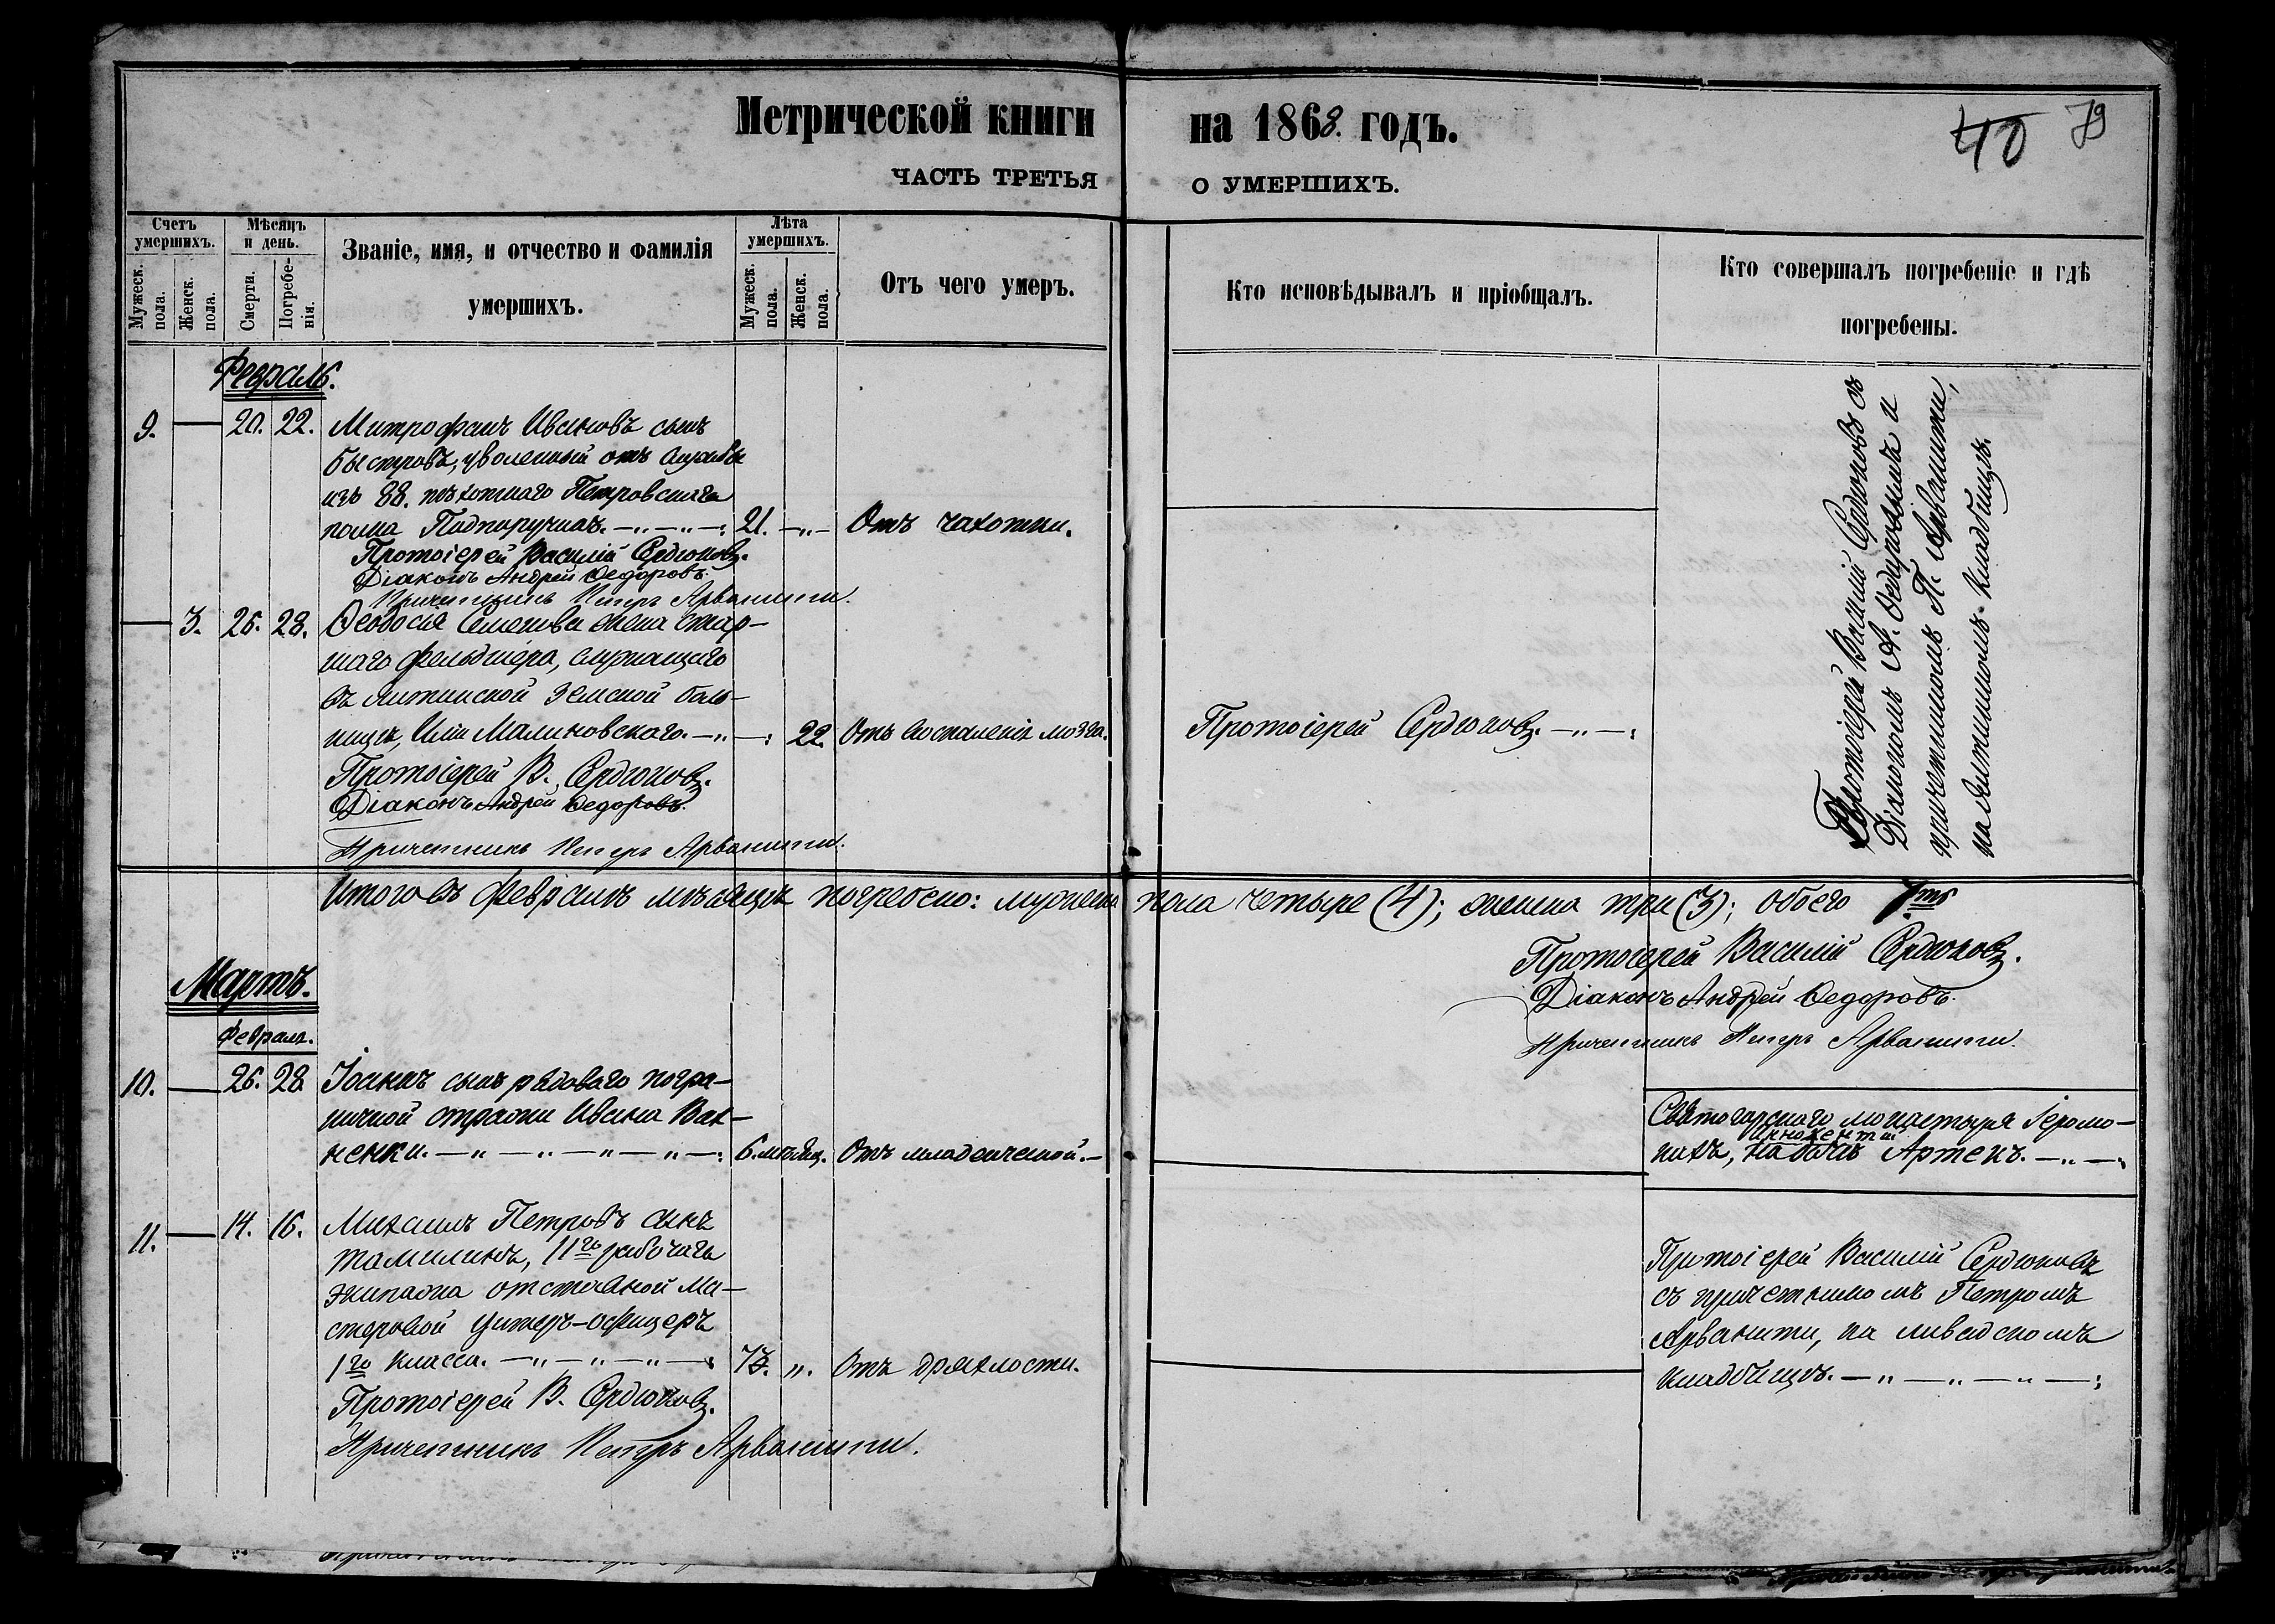 Метрической книги на 1868. годъ.
40 79
ЧАСТЬ ТРЕТЬЯ О УМЕРШИХЪ.
Счетъ умершихъ.
Мужеск. пола.
Женск. пола.
Мѣсяцъ и день.
Смерти.
Погребенія.
Званіе, имя, и отчество и фамилія
умершихъ.
Лѣта умершихъ.
Мужеск. пола.
Женск. пола.
Отъ чего умеръ.
Кто исповѣдывалъ и пріобщалъ.
Кто совершалъ погребеніе и гдѣ
погребены.
Февраль.
9. — 20. 22. Митрофанъ Ивановъ сынъ
Быстровъ, уволенный отъ службы
изъ 88. пѣхотнаго Петровскаго
полка Подпоручикъ. 21. Отъ чахотки.
Протоіерей Василій Сердюковъ.
Діаконъ Андрей Ѳедоровъ.
Причетникъ Петръ Арванити.
— 3. 26. 28. Ѳеодосія Семенова жена стар-
шаго фельдшера, служащаго
въ Ялтинской Земской боль-
ницѣ, Иліи Малиновскаго. 22. Отъ воспаленія мозга. Протоіерей Сердюковъ.
Протоіерей В. Сердюковъ.
Діаконъ Андрей Ѳедоровъ.
Причетникъ Петръ Арванити.
Протоіерей Василій Сердюковъ съ
Діакономъ А. Ѳедоровымъ и
причетникомъ П. Арванити,
на Ялтинскомъ кладбищѣ.
Итого въ Февралѣ мѣсяцѣ погребено: мужеска пола четыре (4); женска три (3); обоего 7мь
Протоіерей Василій Сердюковъ.
Діаконъ Андрей Ѳедоровъ.
Причетникъ Петръ Арванити.
Мартъ.
Февраля.
10. — 26. 28. Іоаннъ сынъ рядоваго погра-
ничной стражи Ивана
ненки. 6. мѣсяц. Отъ младенческой.
Святогорскаго монастыря Іеромо-
нахъ, Артекъ.
11. — 14. 16. Михаилъ Петровъ сынъ
Томилинъ, 11го рабочаго
экипажа отставной Ма-
стеровой Унтеръ-офицеръ
1го класса. „. Отъ дряхлости.
Протоіерей В. Сердюковъ.
Причетникъ Петръ Арванити.
Протоіерей Василій Сердюковъ
съ причетникомъ Петромъ
Арванити, на ливадскомъ
кладбищѣ.